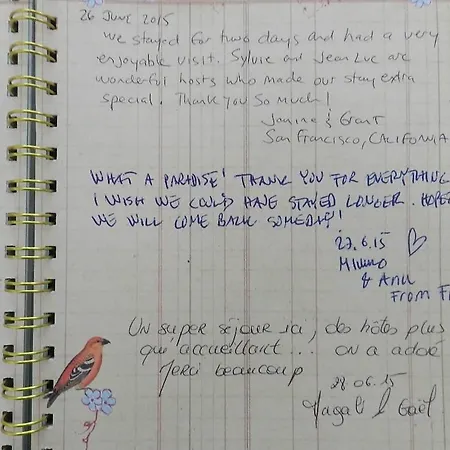 26 June 2015
We stayed for two days and had a very
enjoyable visit. Sylvie and Jean Luc are
wonderful hosts who made our stay extra
special. Thank you so much!
Janine & Grant
San Francisco, CALIFORNIA
WHAT A PARADISE! THANK YOU FOR EVERYTHING
I WISH WE COULD HAVE STAYED LONGER. HOPE
WE WILL COME BACK SOMEDAY!
27.6.15
& Anu
From F
Un super séjour ici, des hôtes plus
que accueillant... on a adoré
Merci beaucoup
28.06.15
Magali & Gaël